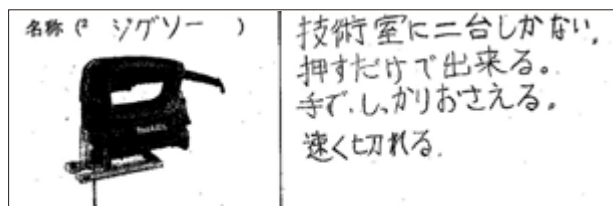 名称 (2 ジグソー )
技術室に二台しかない。
押すだけで出来る。
手で、しっかりおさえる。
速く切れる。